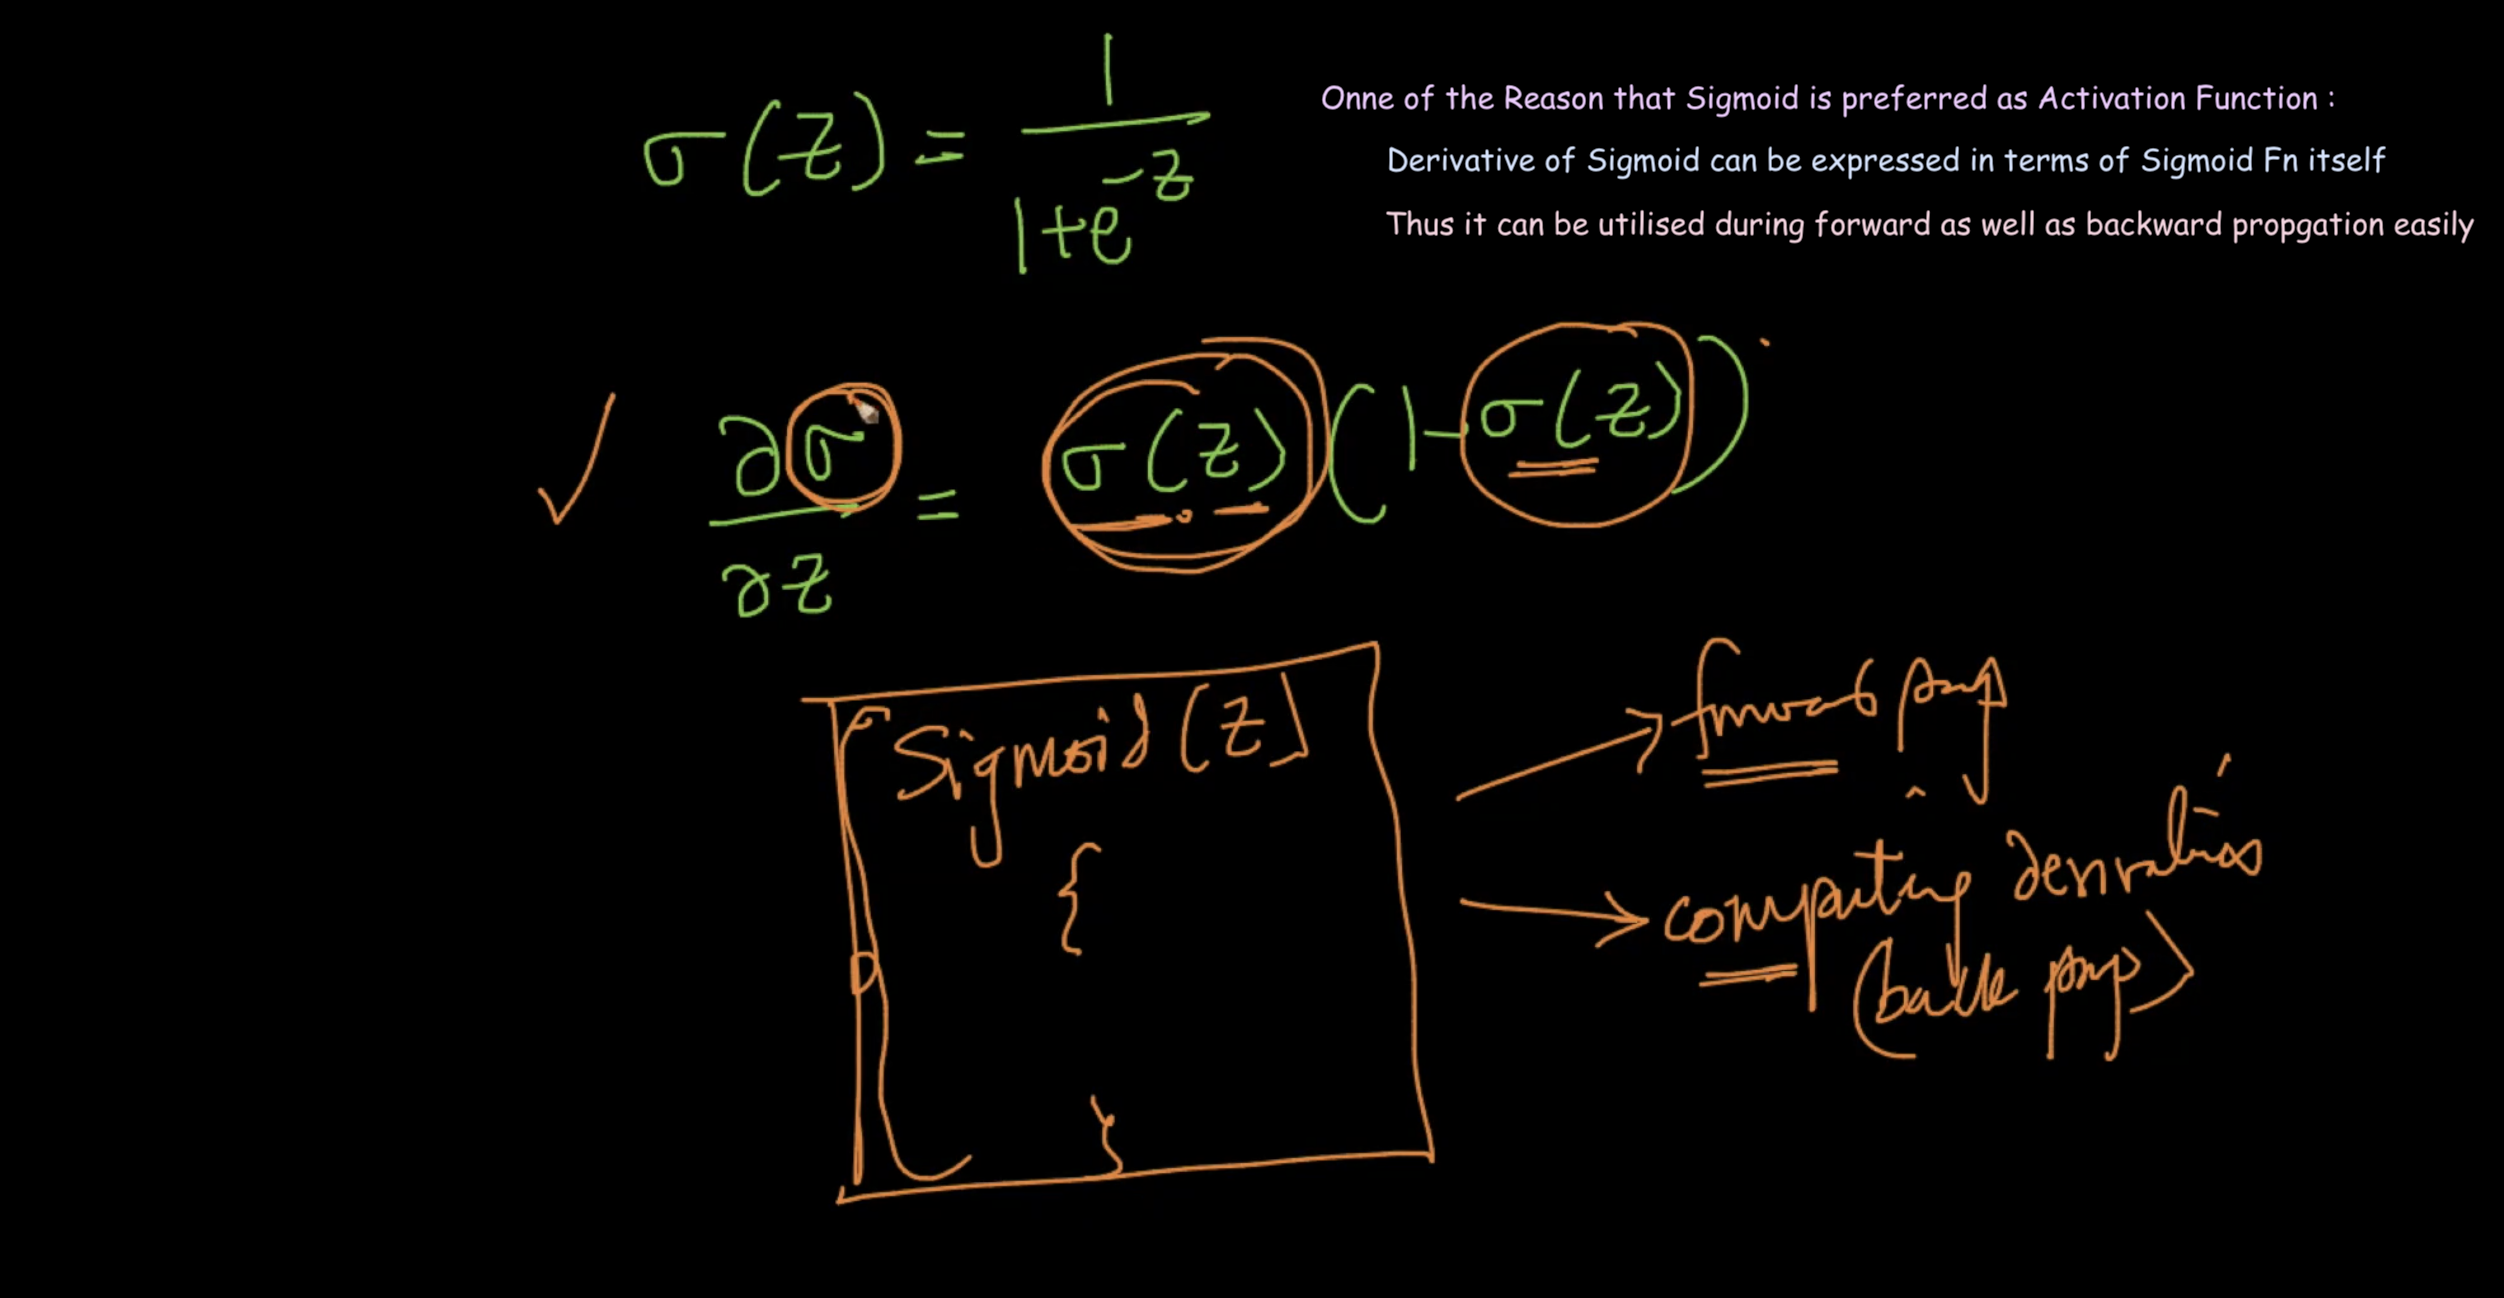 σ(z) = 1 / 1+e^-z
Onne of the Reason that Sigmoid is preferred as Activation Function :
Derivative of Sigmoid can be expressed in terms of Sigmoid Fn itself
Thus it can be utilised during forward as well as backward propgation easily
∂σ / ∂z = σ(z) (1-σ(z))
Sigmoid (z)
{
}
forward prop
computing derivatives
(back prop)